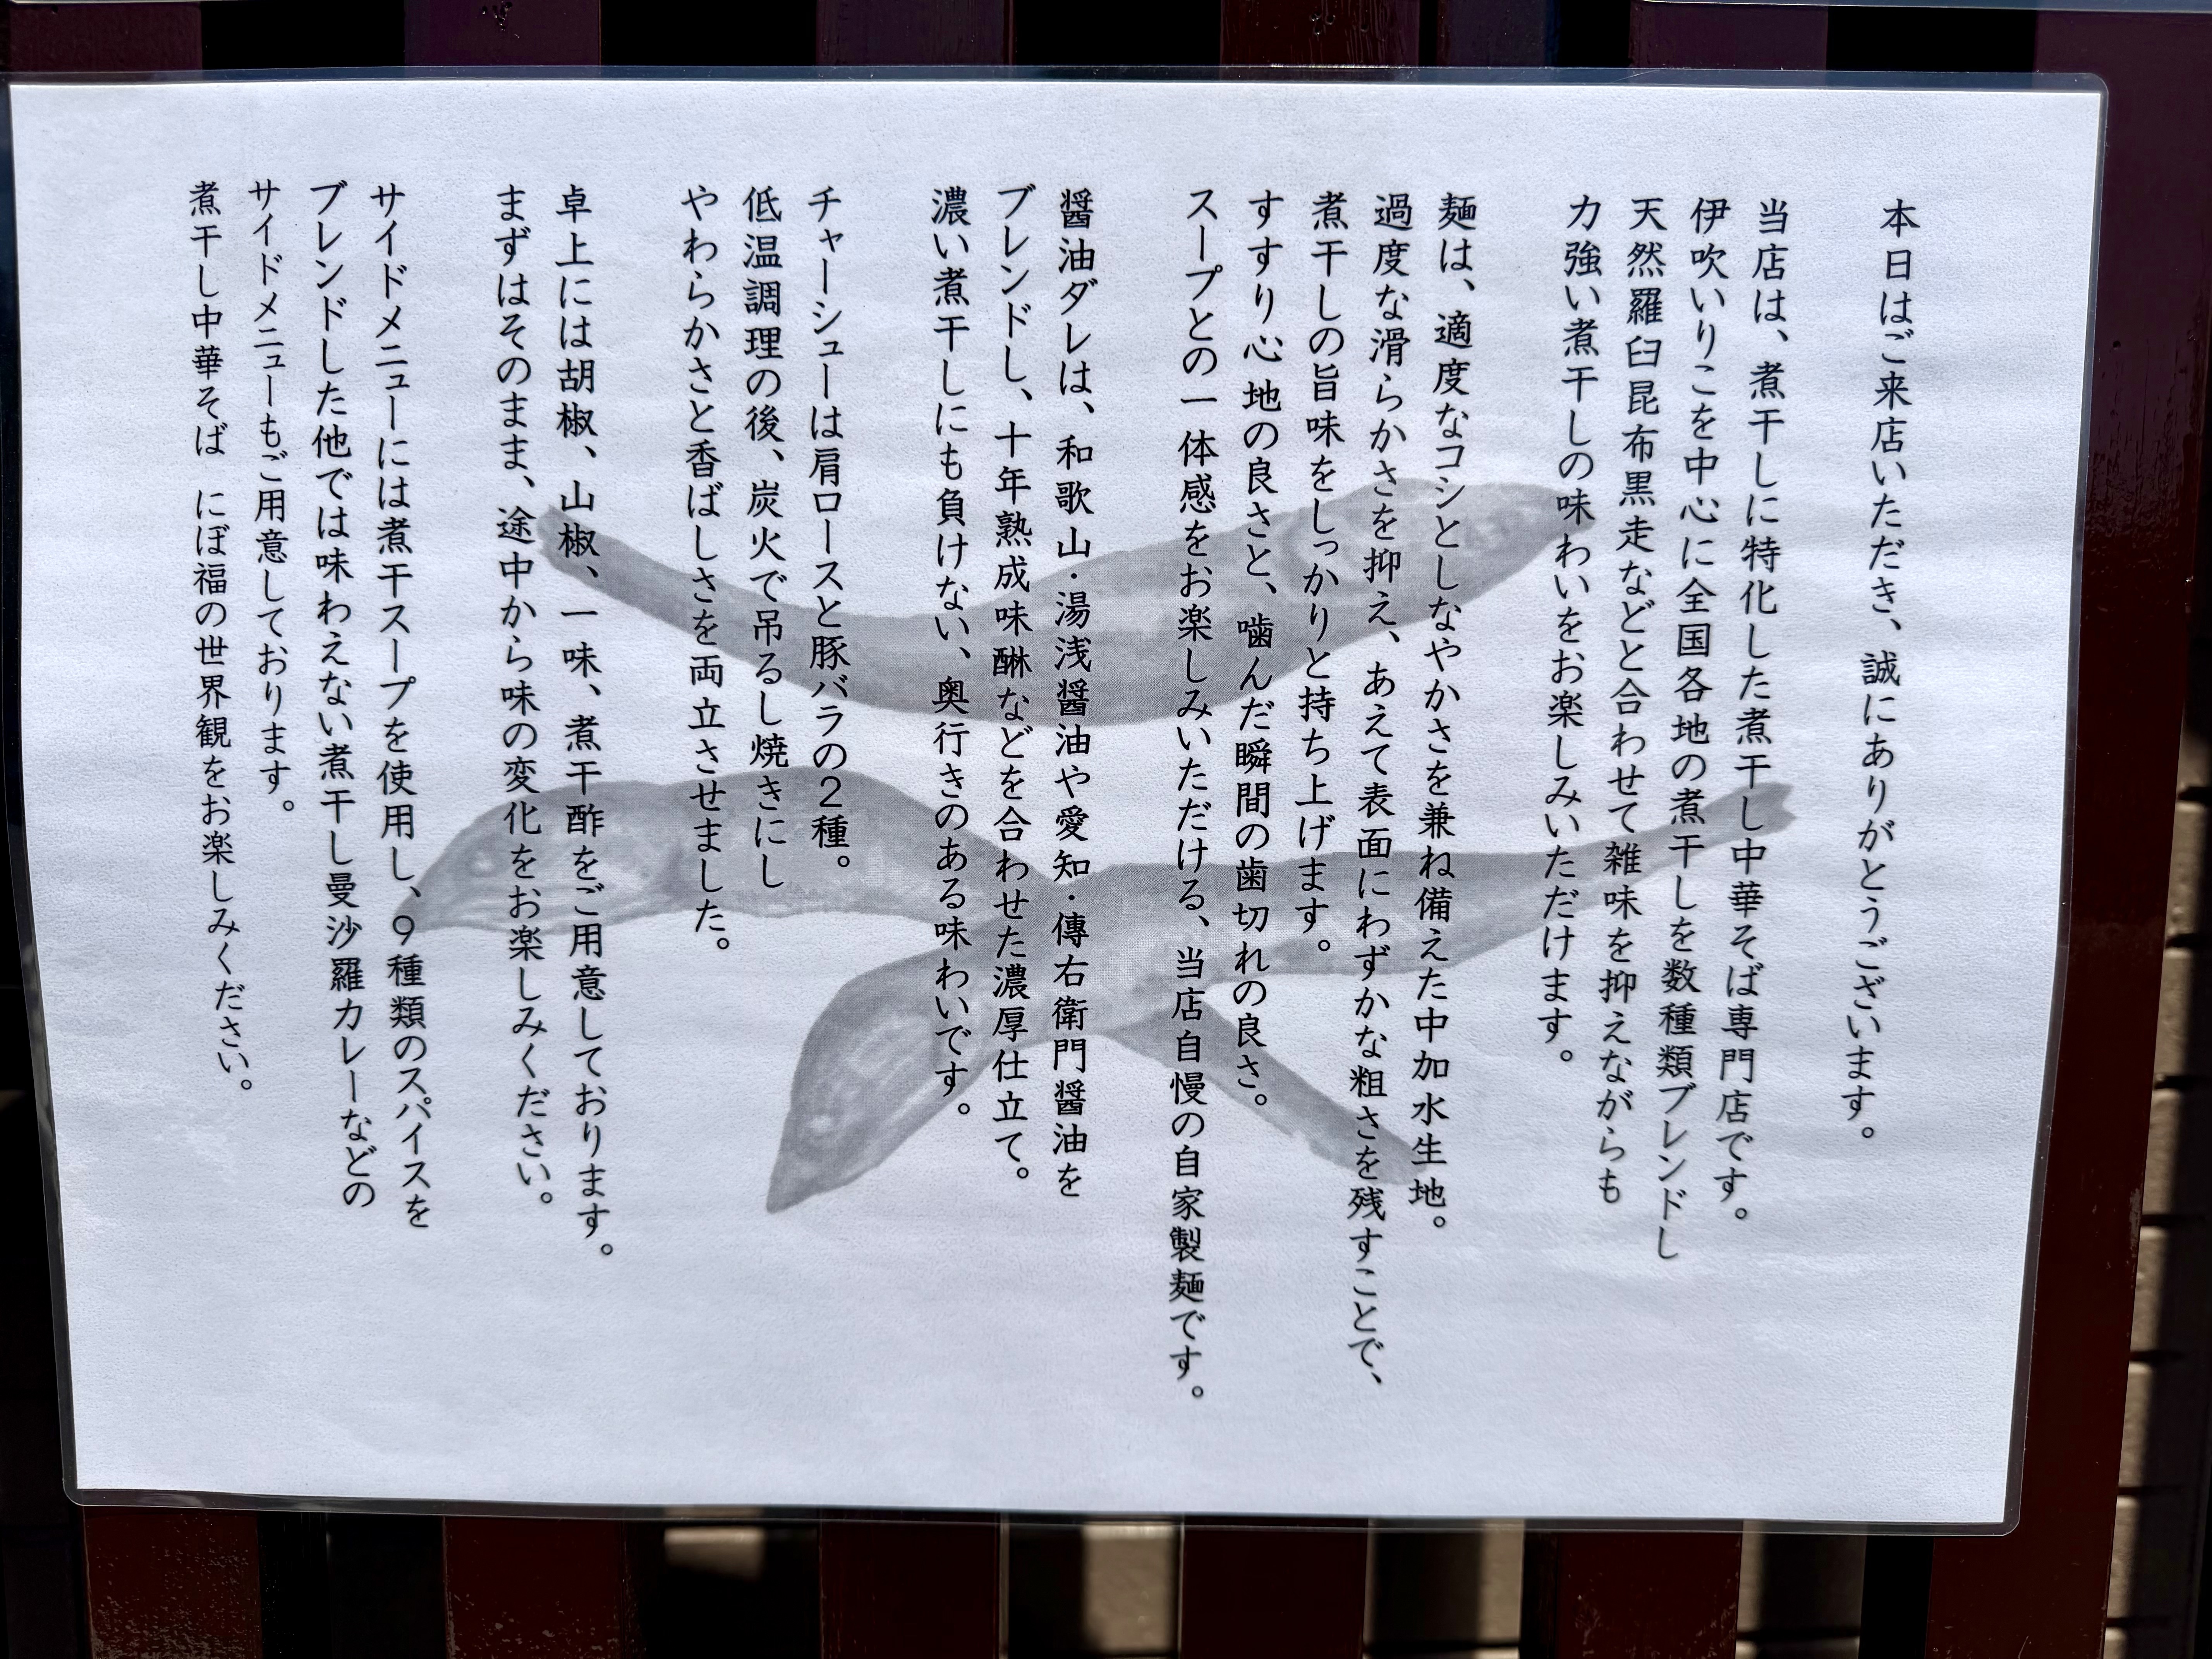 本日はご来店いただき、誠にありがとうございます。
当店は、煮干しに特化した煮干し中華そば専門店です。
伊吹いりこを中心に全国各地の煮干しを数種類ブレンドし
天然羅臼昆布黒走などと合わせて雑味を抑えながらも
力強い煮干しの味わいをお楽しみいただけます。
麺は、適度なコシとしなやかさを兼ね備えた中加水生地。
過度な滑らかさを抑え、あえて表面にわずかな粗さを残すことで、
煮干しの旨味をしっかりと持ち上げます。
すすり心地の良さと、噛んだ瞬間の歯切れの良さ。
スープとの一体感をお楽しみいただける、当店自慢の自家製麺です。
醤油ダレは、和歌山・湯浅醤油や愛知・傳右衛門醤油を
ブレンドし、十年熟成味醂などを合わせた濃厚仕立て。
濃い煮干しにも負けない、奥行きのある味わいです。
チャーシューは肩ロースと豚バラの2種。
低温調理の後、炭火で吊るし焼きにし
やわらかさと香ばしさを両立させました。
卓上には胡椒、山椒、一味、煮干酢をご用意しております。
まずはそのまま、途中から味の変化をお楽しみください。
サイドメニューには煮干スープを使用し、9種類のスパイスを
ブレンドした他では味わえない煮干し曼沙羅カレーなどの
サイドメニューもご用意しております。
煮干し中華そば にぼ福の世界観をお楽しみください。